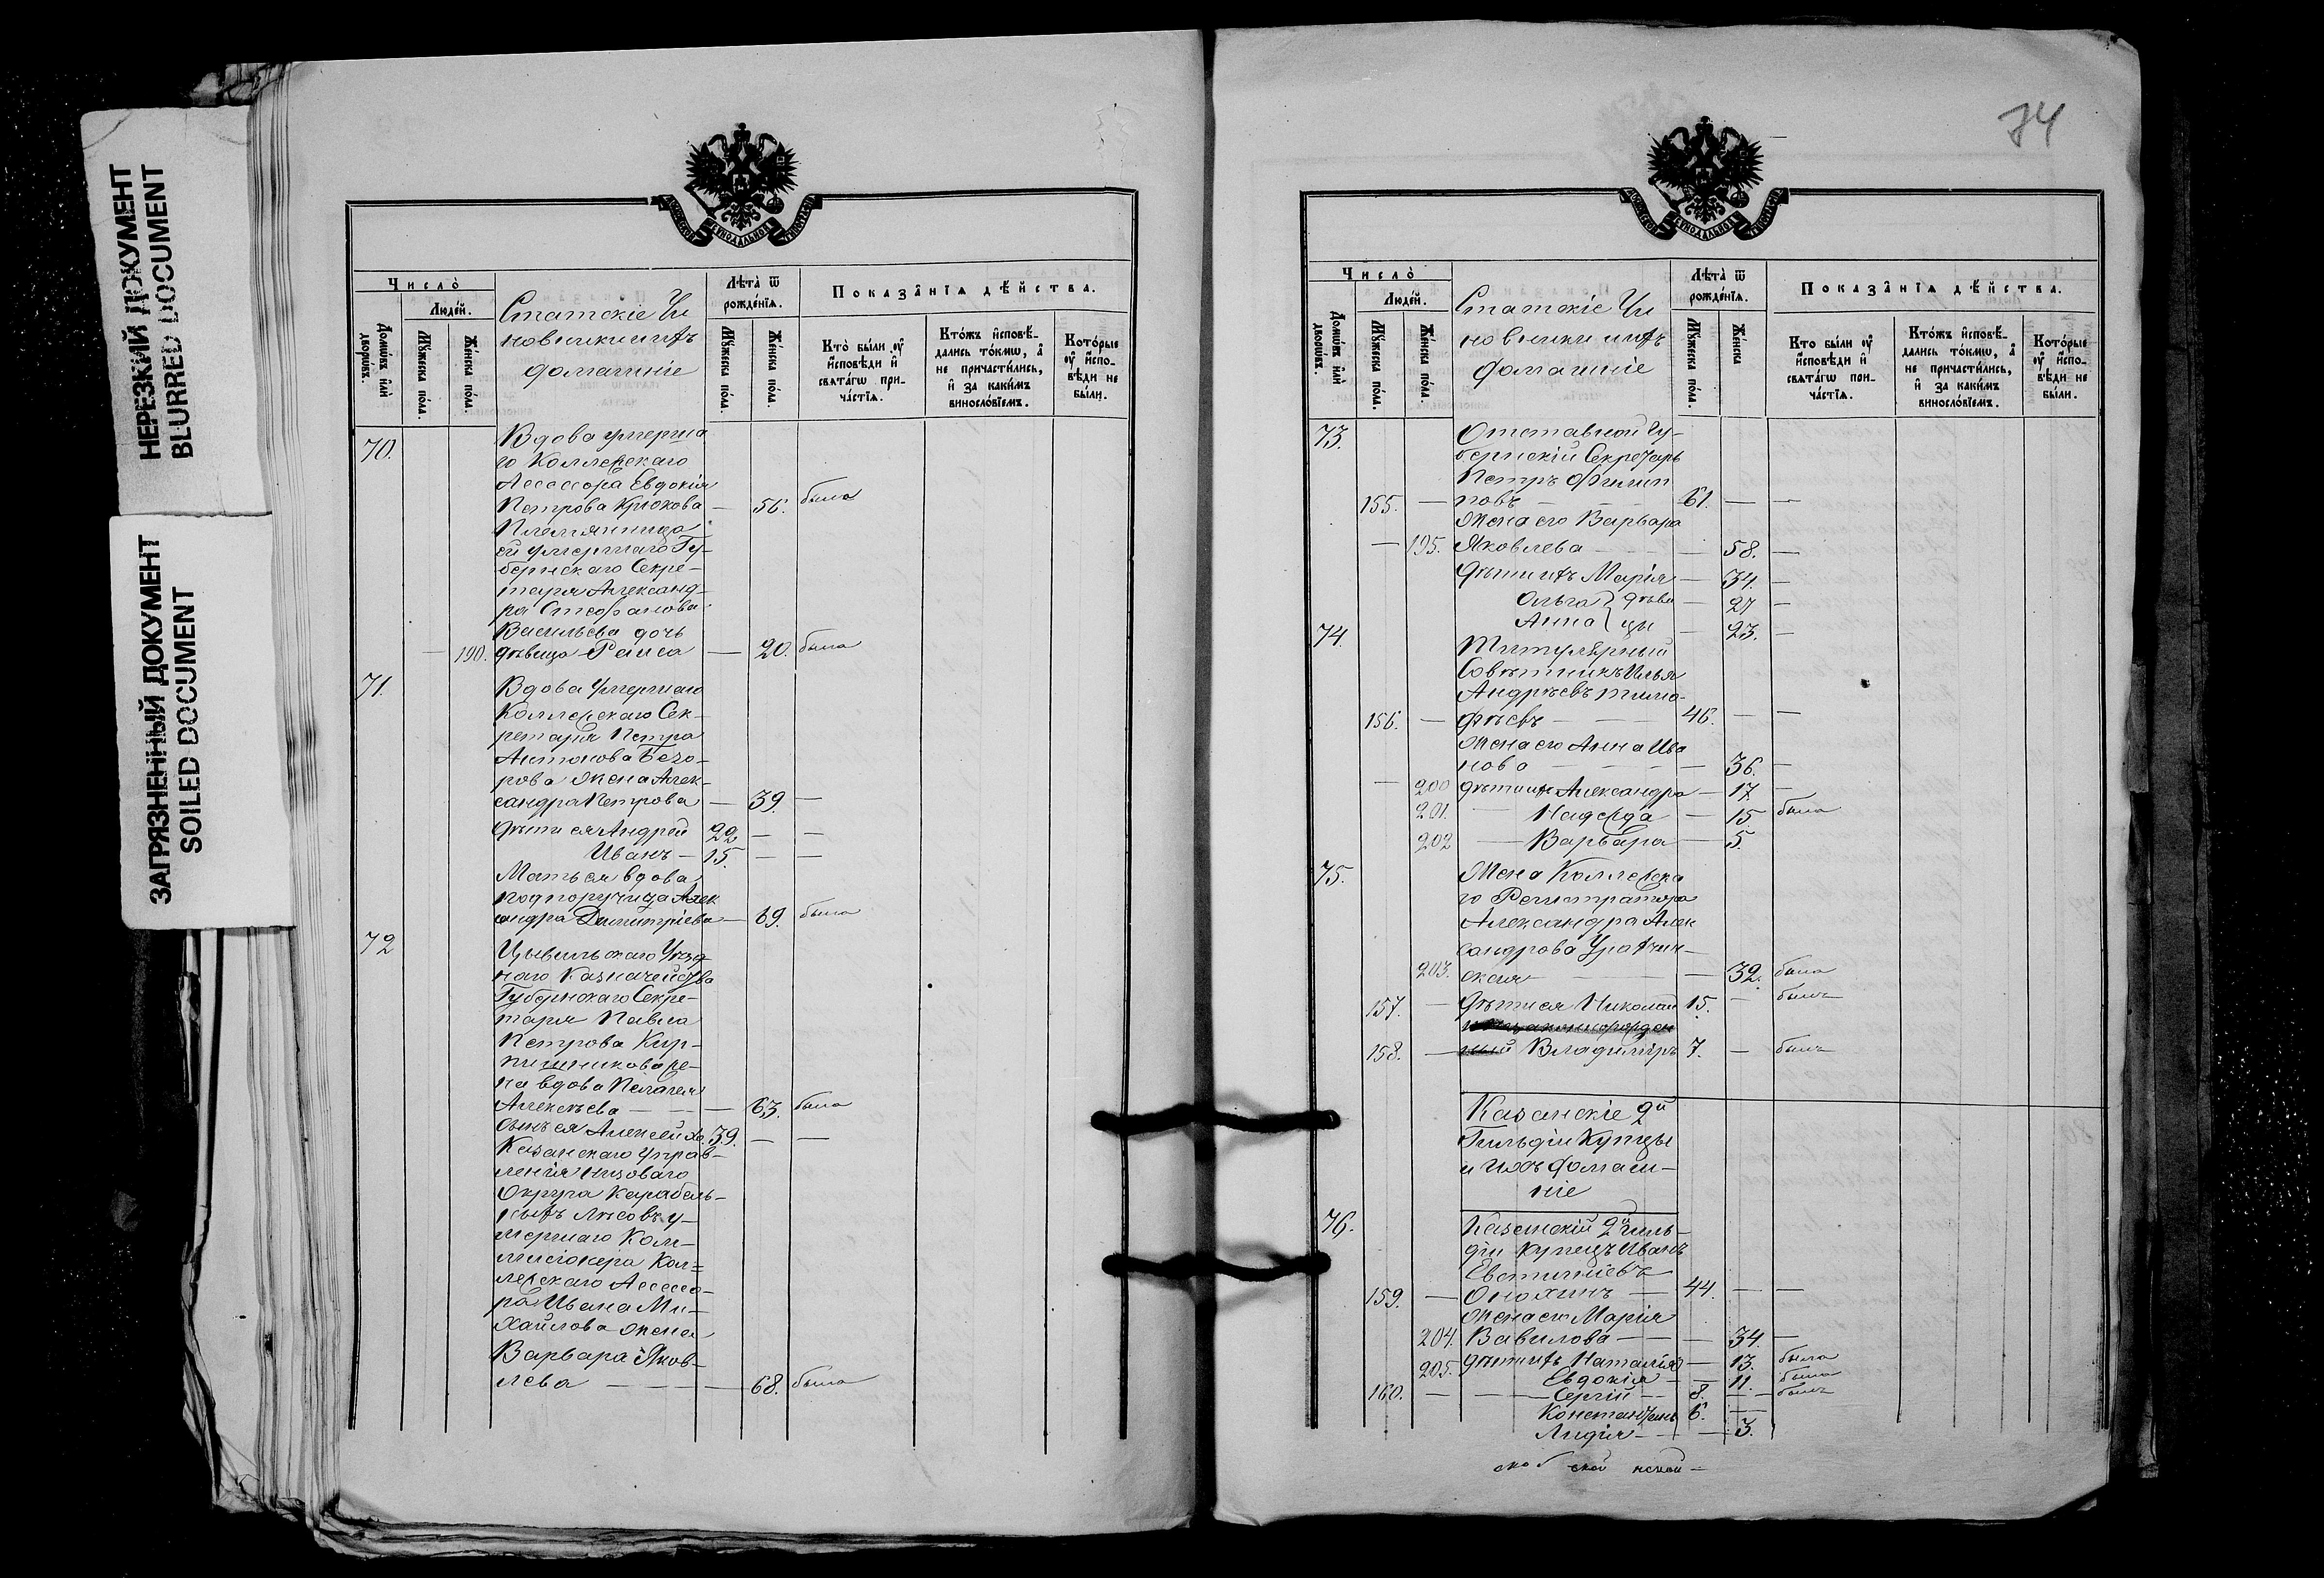 НЕРЕЗКИЙ ДОКУМЕНТ
BLURRED DOCUMENT
ЗАГРЯЗНЕННЫЙ ДОКУМЕНТ
SOILED DOCUMENT
Число̀
Люде́й.
Домѡ́въ и҆лѝ дворѡ́въ.
Мꙋ́жеска по́ла.
Же́нска по́ла.
Статскіе Чи
новники ихъ
домашніе
Лѣта̀ ѿ
рожде́нїѧ.
Мꙋ́жеска по́ла.
Же́нска по́ла.
Показа̑нїѧ дѣ́йства.
Кто̀ бы́ли ᲂу҆
и҆сповѣди и҆
свѧта́гѡ при-
ча́стїѧ.
Кто́жъ и҆сповѣ́-
дались то́кмѡ, а҆
не причасти́лись,
и҆ за каки́мъ
винослóвїемъ.
Кото́рые
ᲂу҆ и҆спо-
вѣди не
бы́ли.
70.
Вдова умерша
го Коллежскаго
Ассессора Евдокія
Петрова Крюкова — 56. была
Племянница
ей умершаго Гу-
бернскаго Секре-
таря Александ-
ра Стефанова
Васильева дочь
— 190. дѣвица Раиса — 20. была
71.
Вдова Умершаго
Коллежскаго Сек-
ретаря Петра
Антонова
рова жена Алек-
сандра Петрова — 39. —
дѣти ея Андрей 22 — —
Иванъ — 15. — —
Мать ея вдова
подпоручица Алек
сандра Димитріева — 69. была
72
Цывильскаго Уѣзд
наго Казначейства
Губернскаго Секре-
таря Павла
Петрова Кир-
пишникова же-
на вдова Пелагея
Алексѣева — — — 63. была
сынъ ея Алексѣй 39. — —
Казанскаго Управ-
ленія Низоваго
Округа Карабель-
ныхъ Лѣсовъ у-
мершаго Ком-
мисіонера Кол=
лежскаго Ассесо-
ра Ивана Ми-
хайлова жена
Варвара Яков-
лева — — — 68. была
74
Число̀
Люде́й.
Домѡ́въ и҆лѝ дворѡ́въ.
Мꙋ́жеска по́ла.
Же́нска по́ла.
Статскіе Чи
новники ихъ
домашніе
Лѣта̀ ѿ
рожде́нїѧ.
Мꙋ́жеска по́ла.
Же́нска
Показа̑нїѧ дѣ́йства.
Кто̀ бы́ли ᲂу҆
и҆сповѣди и҆
свѧта́гѡ при-
ча́стїѧ.
Кто́жъ и҆сповѣ́-
дались то́кмѡ, а҆
не причасти́лись,
и҆ за каки́мъ
винослóвїемъ.
Кото́рые
ᲂу҆ и҆спо-
вѣди не
бы́ли.
73.
Отставной Гу-
бернскій Секретарь
Петръ Филип
155. — повъ — — 61. — —
жена его Варвара
— 195. Яковлева — — 58. —
дѣти ихъ Марія — 34 —
Ольга } дѣви — 27 —
Анна } цы — 23. —
74.
Титулярный
Совѣтникъ Илья
Андрѣевъ Тимо-
156. — фѣевъ — — 46. — —
жена его Анна Ива
нова — — — 36. —
— 200 дѣти ихъ Александра — 17 —
201. — Надежда — 15 была
202 — Варвара — 5.
75.
Жена Коллежска
го Регистратора
Александра Алек
сандрова
203. ская — — 32. была
157. — дѣти ея Николай 15. — былъ
158. — Владиміръ 7. — былъ
Казанскіе 2й
Гильдіи Купцы
и ихъ домаш-
ніе
76.
Казанскій 2й гиль-
діи купецъ Иванъ
Евстигніевъ
159. — Онохинъ — 44. — —
жена его Марія
204. Вавилова — — — 34. —
205. дѣти ихъ Наталія — 13. была
Евдокія — — 11. была
160. — — Сергій — 8. — — былъ
Константинъ 6. —
Лидія — — 3.